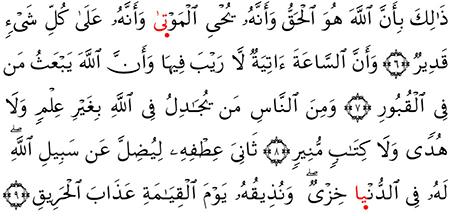 ذَٰلِكَ بِأَنَّ ٱللَّهَ هُوَ ٱلْحَقُّ وَأَنَّهُۥ يُحْيِ ٱلْمَوْتَىٰ وَأَنَّهُۥ عَلَىٰ كُلِّ شَىْءٍۢ
قَدِيرٌۭ ﴿٦﴾ وَأَنَّ ٱلسَّاعَةَ ءَاتِيَةٌۭ لَّا رَيْبَ فِيهَا وَأَنَّ ٱللَّهَ يَبْعَثُ مَن
فِى ٱلْقُبُورِ ﴿٧﴾ وَمِنَ ٱلنَّاسِ مَن يُجَٰدِلُ فِى ٱللَّهِ بِغَيْرِ عِلْمٍۢ وَلَا
هُدًۭى وَلَا كِتَٰبٍۢ مُّنِيرٍۢ ﴿٨﴾ ثَانِىَ عِطْفِهِۦ لِيُضِلَّ عَن سَبِيلِ ٱللَّهِ ۖ
لَهُۥ فِى ٱلدُّنْيَا خِزْىٌۭ ۖ وَنُذِيقُهُۥ يَوْمَ ٱلْقِيَٰمَةِ عَذَابَ ٱلْحَرِيقِ ﴿٩﴾